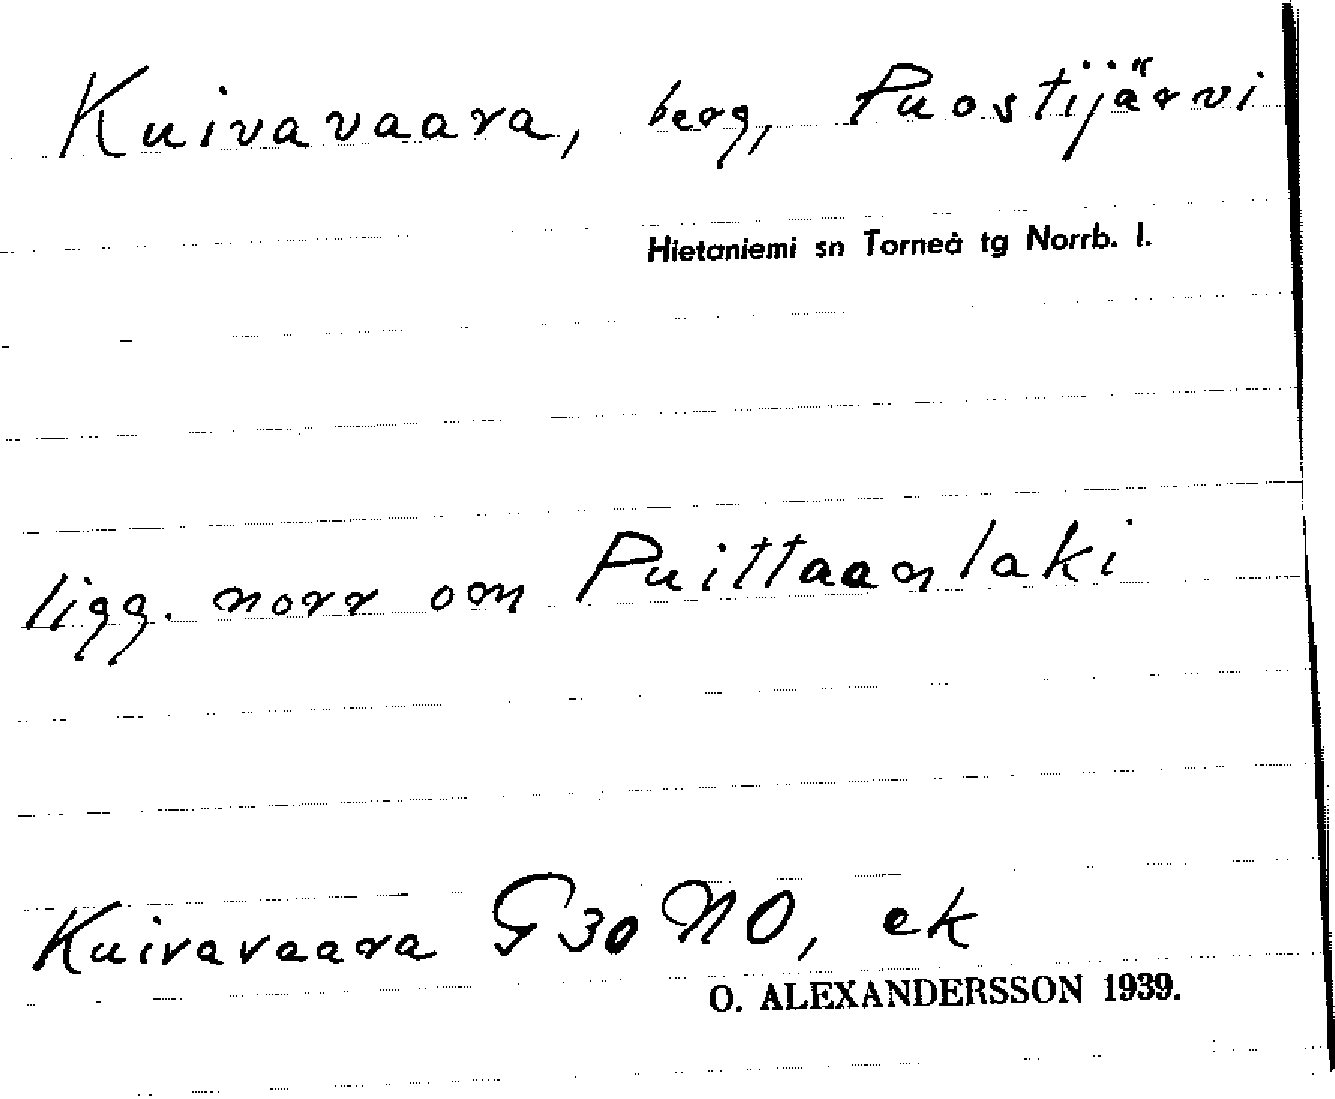 Kuivavaara, berg, Puostijärvi
Hietaniemi sn Torneå tg Norrb. l.
ligg. norr om Puittaanlaki
Kuivavaara G30NO, ek
O. ALEXANDERSSON 1939.